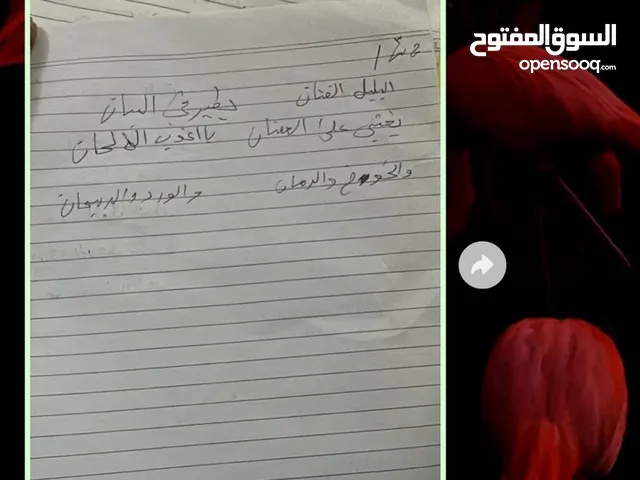 السوق المفتوح
opensooq.com
البلبل الفتان يطير في البستان
يغني على الغصنان بااعذب الألحان
والخوخ والرمان والورد والريحان